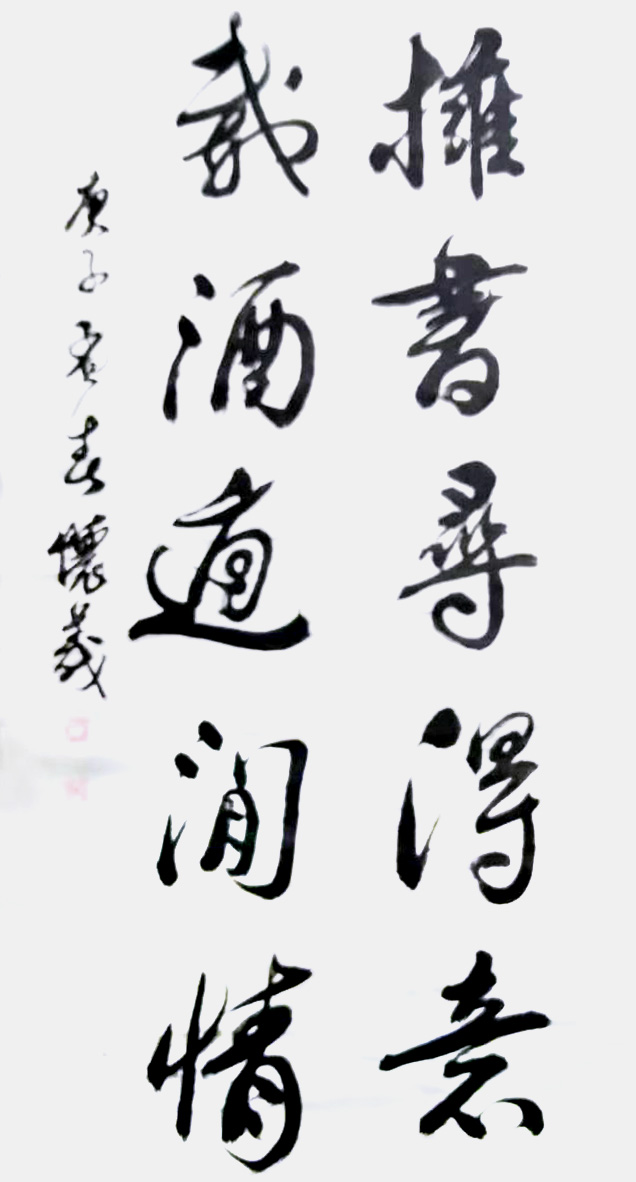 擁書尋得意
載酒適閒情
庚子春懷義